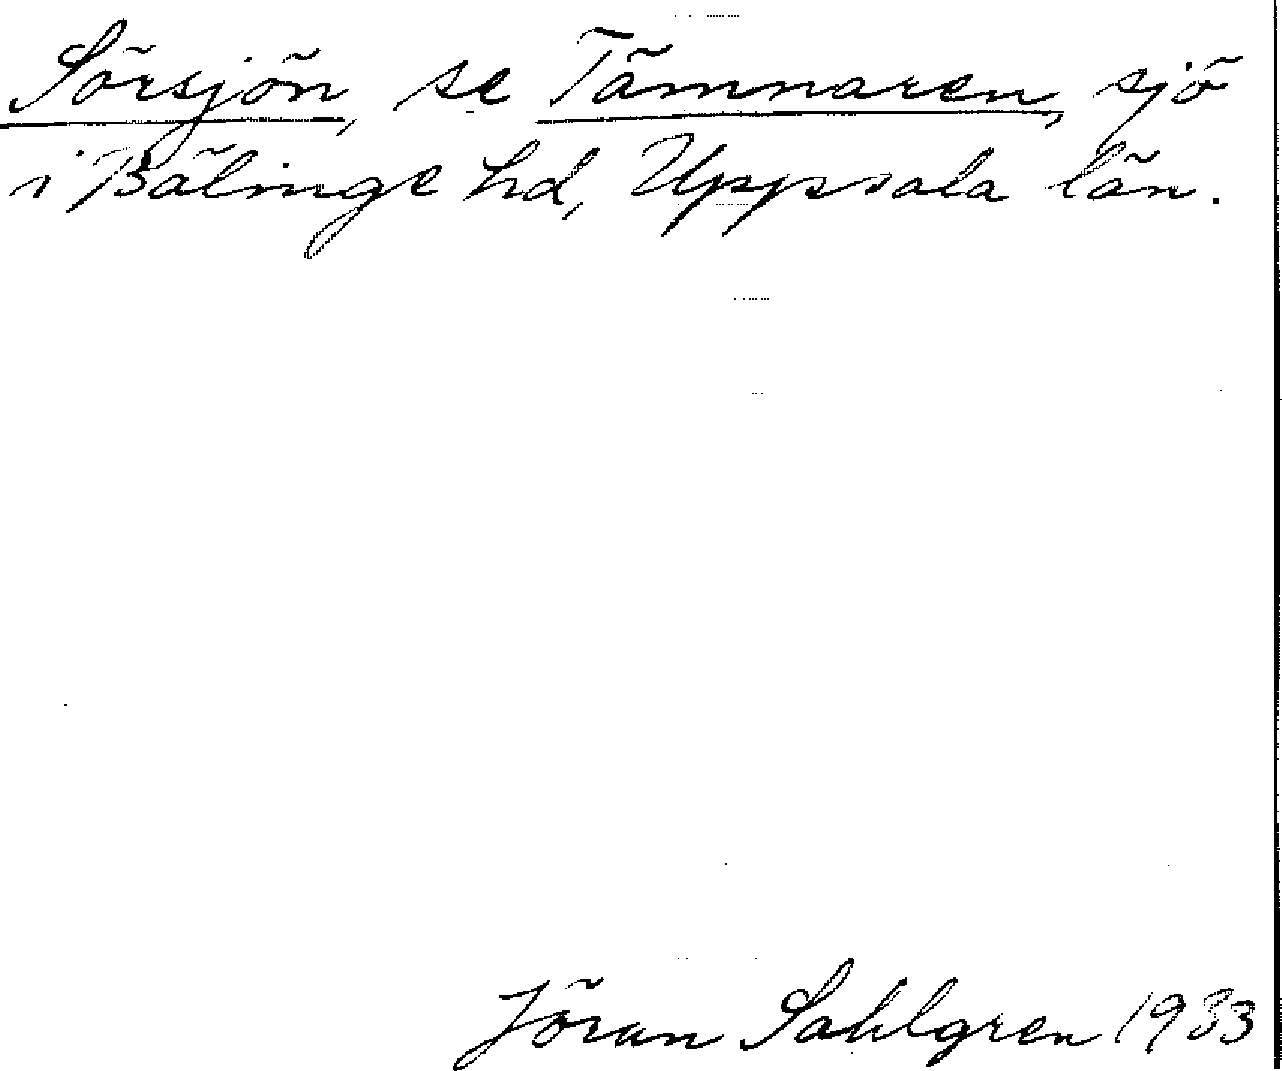 Sörsjön, se Tämnaren, sjö
i Bälinge hd, Uppsala län.
Jöran Sahlgren 1933